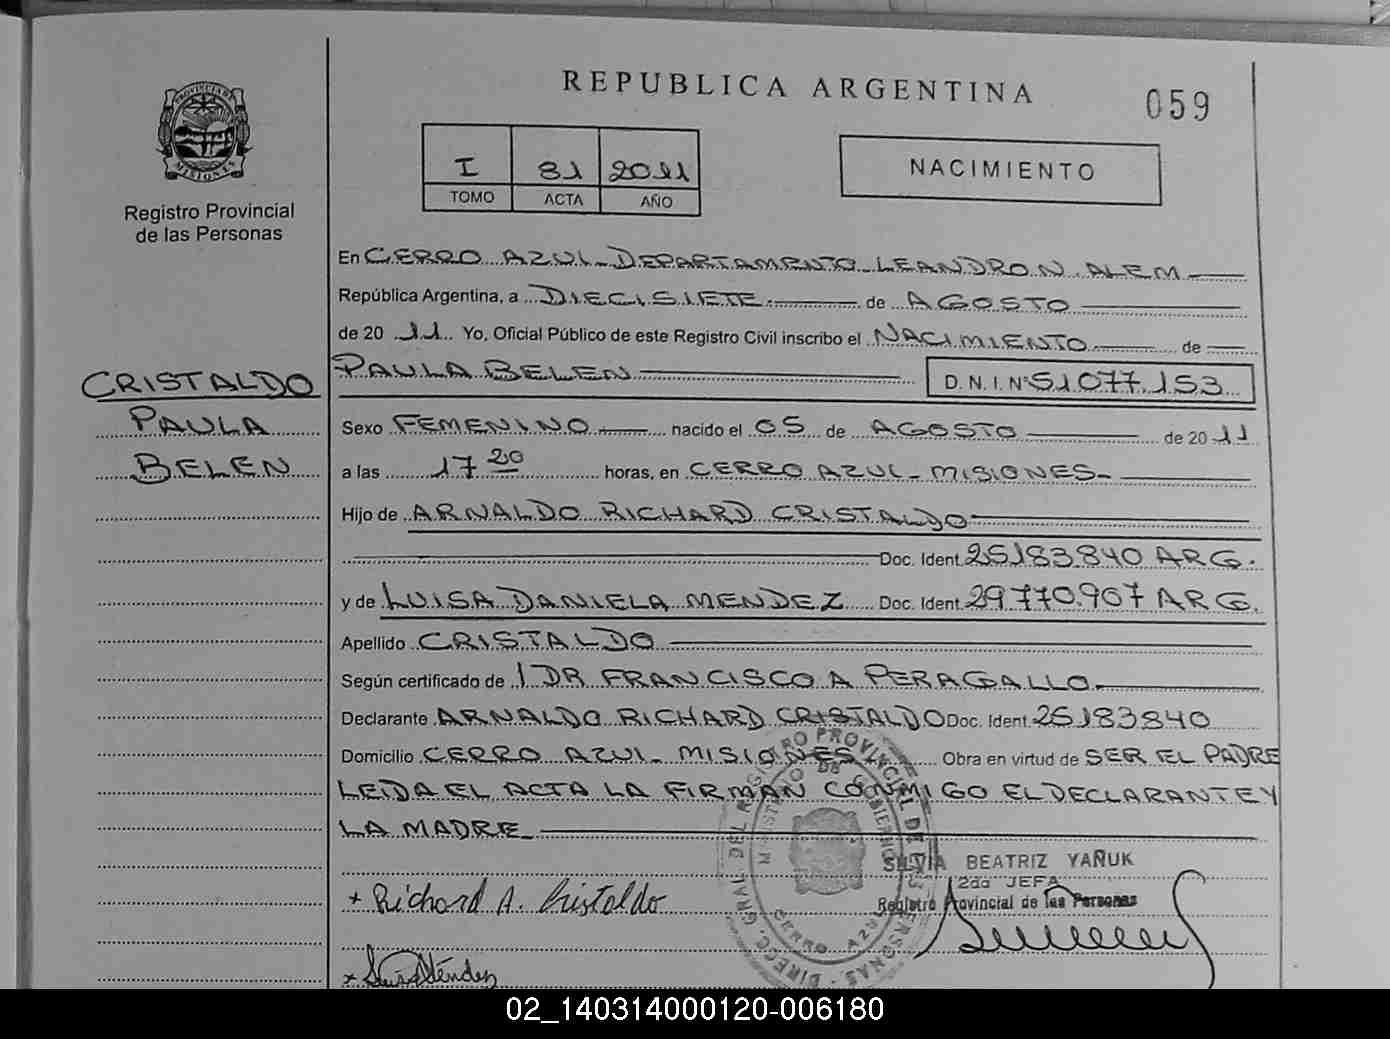 REPUBLICA ARGENTINA
059
PROVINCIA DE MISIONES
Registro Provincial
de las Personas
I 81 2011
TOMO ACTA AÑO
NACIMIENTO
En CERRO AZUL - DEPARTAMENTO LEANDRO N. ALEM
República Argentina, a DIECISIETE de AGOSTO
de 20 11 Yo, Oficial Público de este Registro Civil inscribo el NACIMIENTO de
CRISTALDO
PAULA
BELEN
PAULA BELEN D. N. I. Nº 51.077.153
Sexo FEMENINO nacido el 05 de AGOSTO de 20 11
a las 17 20 horas, en CERRO AZUL - MISIONES -
Hijo de ARNALDO RICHARD CRISTALDO
Doc. Ident. 25.183.840 ARG.
y de LUISA DANIELA MENDEZ Doc. Ident. 29.770.907 ARG.
Apellido CRISTALDO
Según certificado de 1 DR FRANCISCO A PERAGALLO
Declarante ARNALDO RICHARD CRISTALDO Doc. Ident. 25183840
Domicilio CERRO AZUL - MISIONES Obra en virtud de SER EL PADRE
LEIDA EL ACTA LA FIRMAN CONMIGO EL DECLARANTE Y
LA MADRE
SILVIA BEATRIZ YAÑUK
2da JEFA
Registro Provincial de las Personas
+ Richard A. Cristaldo
x Luisa Méndez
CERRO AZUL
02_140314000120-006180